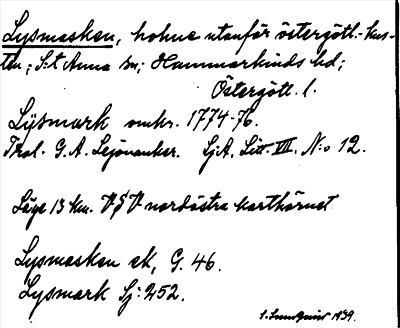 Lysmasken, holme utanför östergötl.-kus-
ten; S:t Anna sn; Hammarkinds hd;
Östergötl. l.
Lÿsmark omkr. 1774-76.
Thal. G. A. Lejonanker. SjA. Litt. VII. N:o 12.
Läge 13 km. VSV nordöstra karthörnet
Lysmasken ek, G. 46.
Lysmark Sj: 252.
1939.